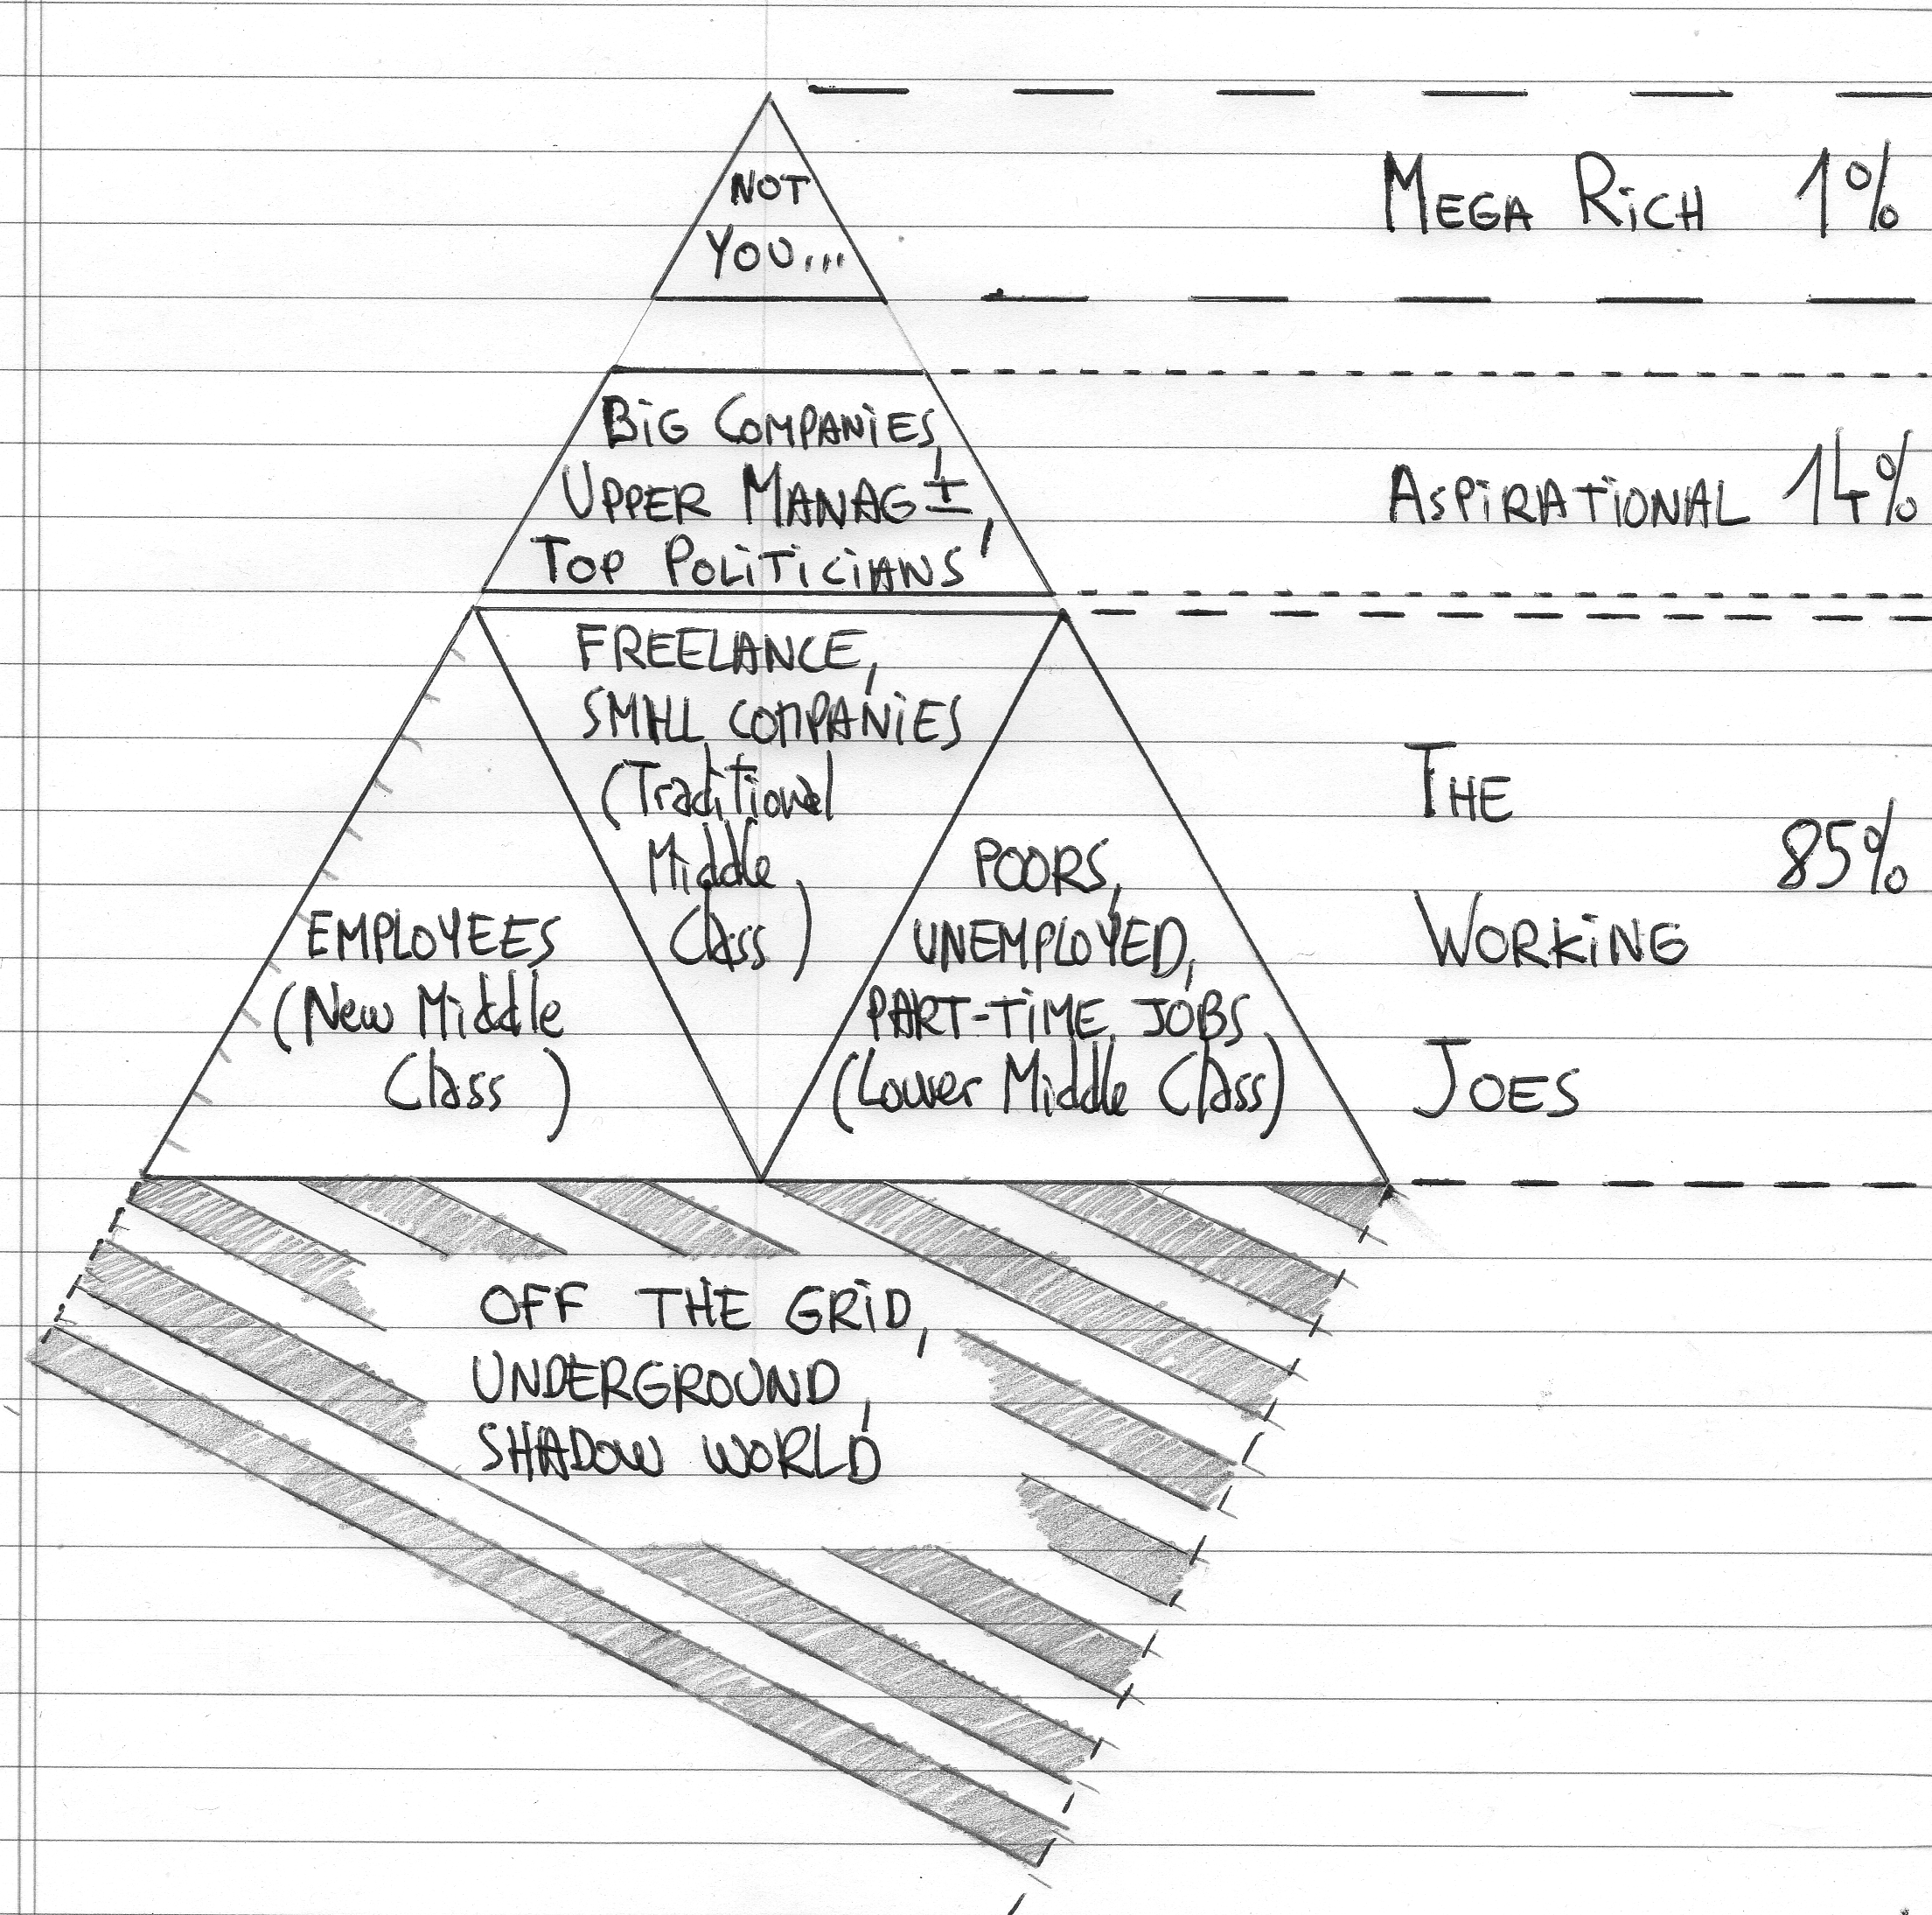 NOT
YOU...
MEGA RiCH 1%
BiG COMPANiES,
UPPER MANAGT,
TOP POLiTiCiANS
ASPiRATiONAL 14%
FREELANCE,
SMALL COMPANiES
(Traditional
Middle
Class)
EMPLOYEES
(New Middle
Class)
POORS,
UNEMPLOYED,
PART-TiME JOBS
(Lower Middle Class)
THE
WORKiNG
JOES
85%
OFF THE GRiD,
UNDERGROUND,
SHADOW WORLD